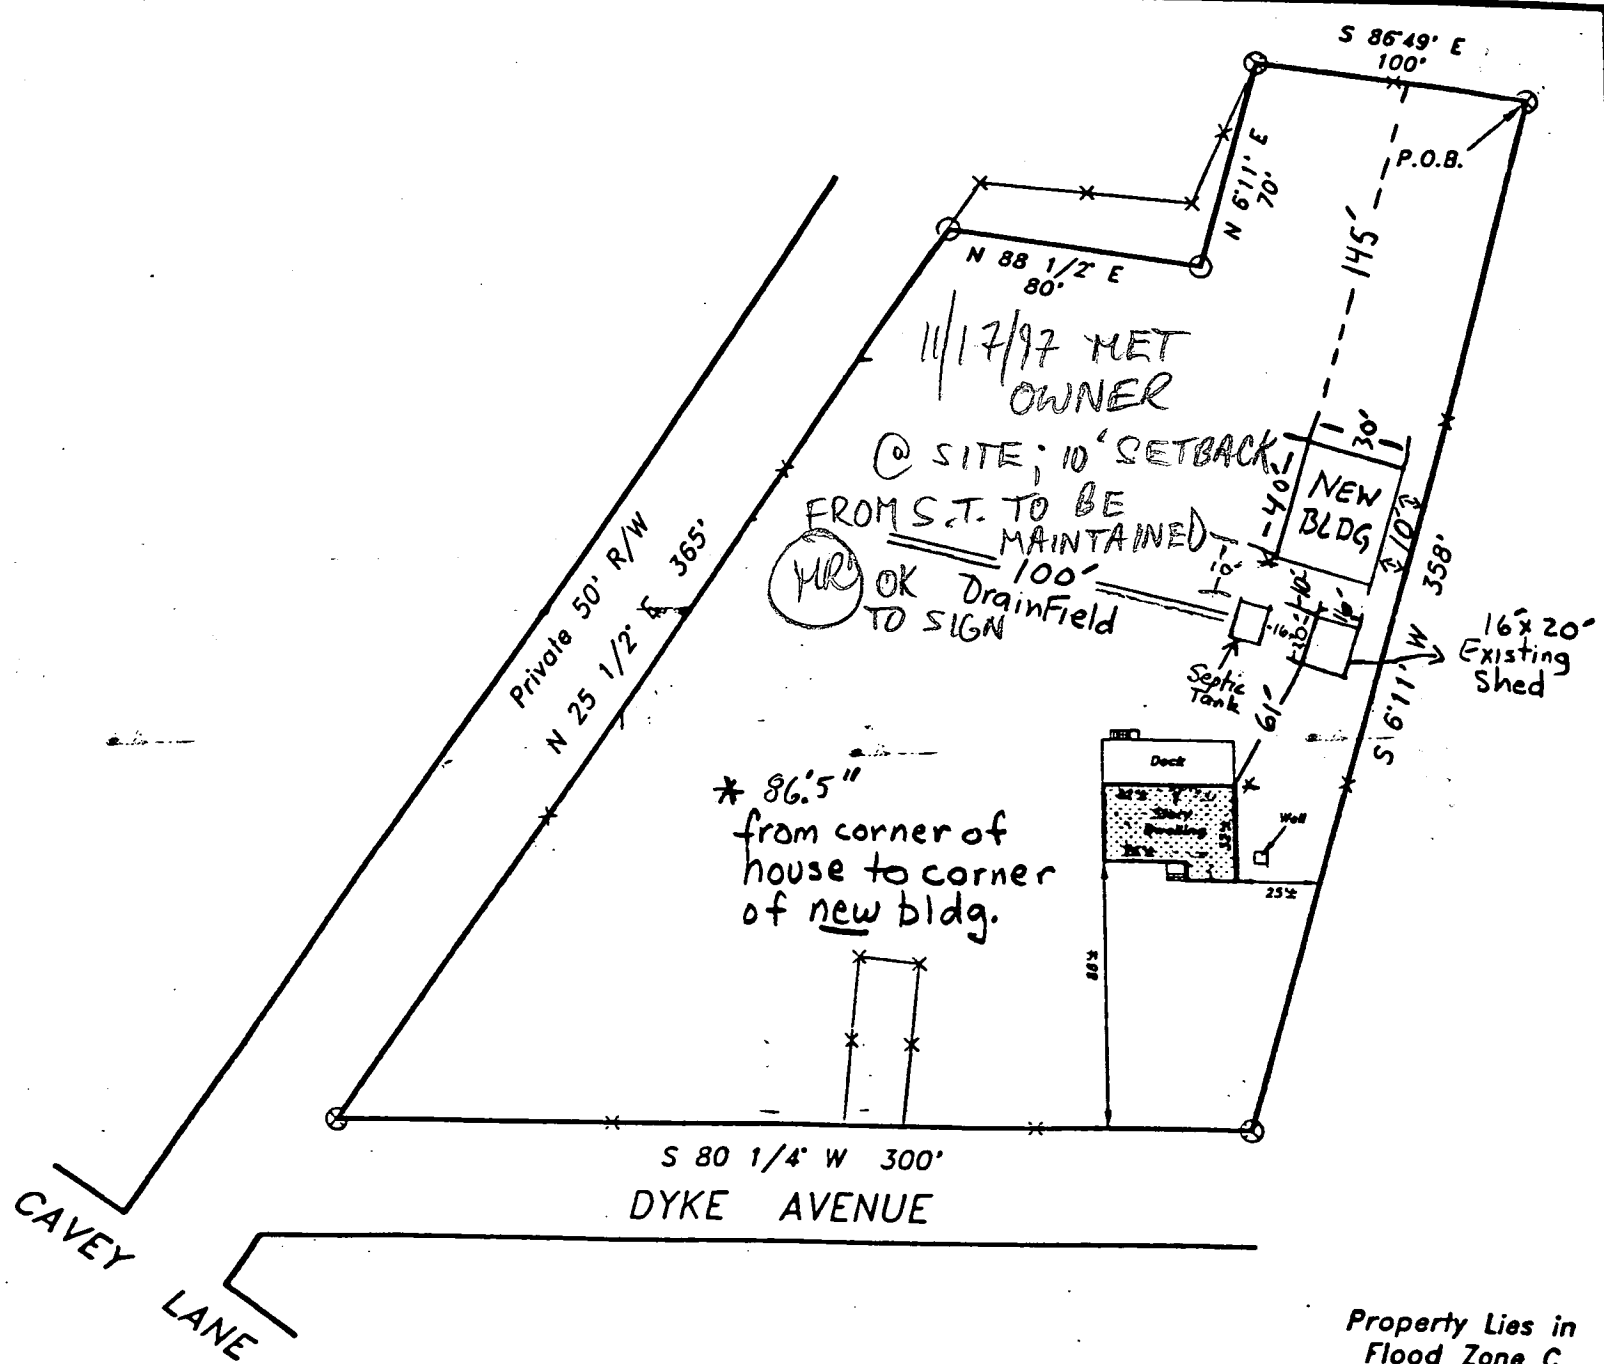 S 86°49' E
100'
P.O.B.
N 6°11' E
70'
N 88 1/2° E
80'
145'
11/17/97 MET
OWNER
@ SITE; 10' SETBACK
FROM S.T. TO BE
MAINTAINED
MR OK
TO SIGN
30'
40'
NEW
BLDG
10'
358'
S 6°11' W
100'
DrainField
10'
10'
16'
20'
16'
16x20'
Existing
Shed
Septic
Tank
61'
Private 50' R/W
N 25 1/2° E 365'
* 86'.5"
from corner of
house to corner
of new bldg.
Deck
Story
Dwelling
Well
25±
88±
S 80 1/4° W 300'
DYKE AVENUE
CAVEY
LANE
Property Lies in
Flood Zone C